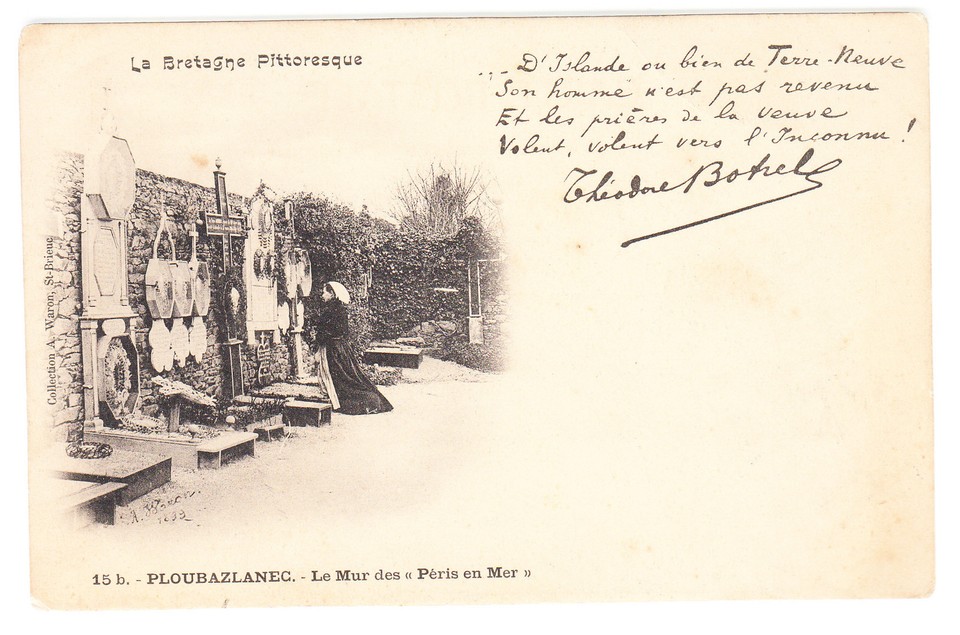 La Bretagne Pittoresque
... D'Islande ou bien de Terre-Neuve
Son homme n'est pas revenu
Et les prières de la veuve
Volent, volent vers l'Inconnu !
Théodore Botrel
Collection A. Waron, St-Brieuc
A. Waron.
15 b. - PLOUBAZLANEC. - Le Mur des « Péris en Mer »